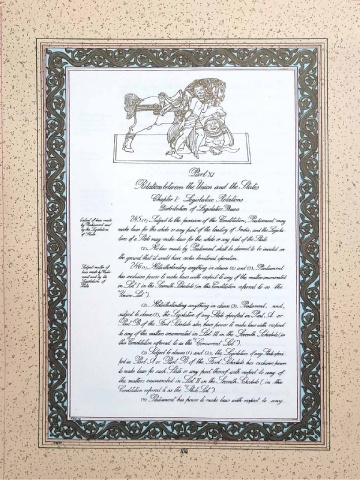 Part XI
Relations between the Union and the States
Chapter I. Legislative Relations
Distribution of Legislative Powers
Extent of laws made
by Parliament and
by the Legislatures
of States.
245. (1) Subject to the provisions of this Constitution, Parliament may
make laws for the whole or any part of the territory of India, and the Legisla-
ture of a State may make laws for the whole or any part of the State.
(2) No law made by Parliament shall be deemed to be invalid on
the ground that it would have extra-territorial operation.
Subject matter of
laws made by Parlia-
ment and by the
Legislatures of
States
246. (1) Notwithstanding anything in clauses (2) and (3), Parliament
has exclusive power to make laws with respect to any of the matters enumerated
in List I in the Seventh Schedule (in this Constitution referred to as the
"Union List").
(2) Notwithstanding anything in clause (3), Parliament, and,
subject to clause (1), the Legislature of any State specified in Part A or
Part B of the First Schedule also, have power to make laws with respect
to any of the matters enumerated in List III in the Seventh Schedule (in
this Constitution referred to as the "Concurrent List").
(3) Subject to clauses (1) and (2), the Legislature of any State speci-
fied in Part A or Part B of the First Schedule has exclusive power
to make laws for such State or any part thereof with respect to any of
the matters enumerated in List II in the Seventh Schedule (in this
Constitution referred to as the "State List").
(4) Parliament has power to make laws with respect to any